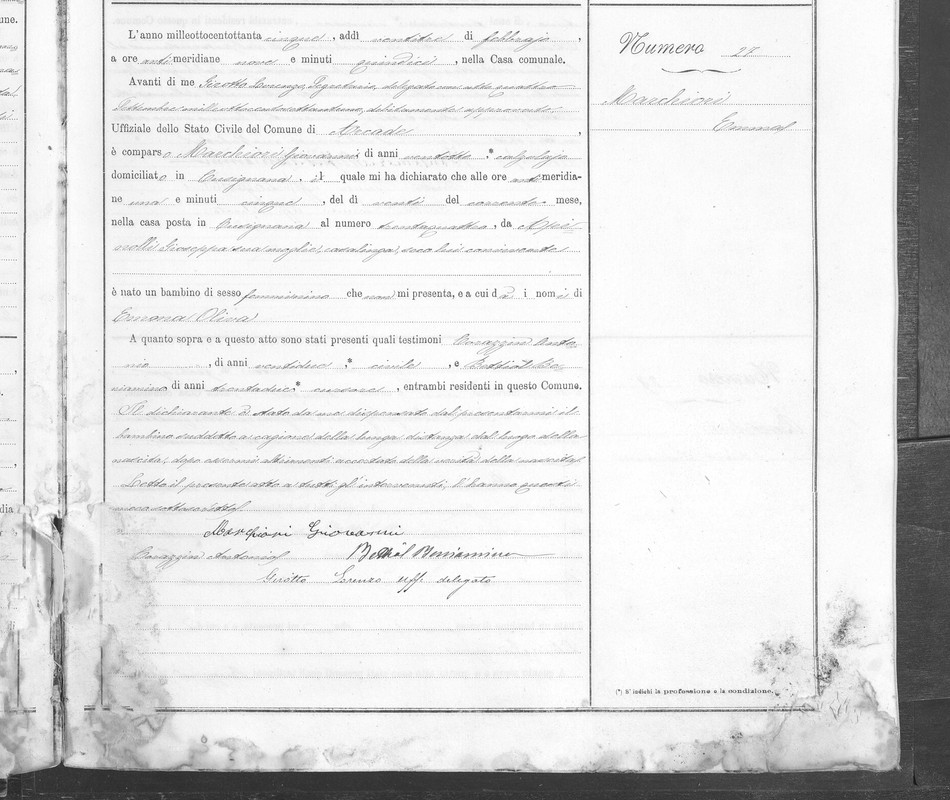 L'anno milleottocentottanta cinque, addì ventitre di febbrajo,
a ore anti meridiane nove e minuti quindici, nella Casa comunale.
Avanti di me Girotto Lorenzo, Segretario, delegato con atto quattro
Settembre mille ottocento settantuno, debitamente approvato,
Uffiziale dello Stato Civile del Comune di Arcade,
è comparso Marchiori Giovanni, di anni ventotto, * calzolajo
domiciliato in Cusignana, il quale mi ha dichiarato che alle ore anti meridia-
ne una e minuti cinque, del dì venti del corrente mese,
nella casa posta in Cusignana al numero trentaquattro, da
Gioseppa sua moglie, casalinga, seco lui convivente
è nato un bambino di sesso femminino che non mi presenta, e a cui dà i nomi di
Emma Oliva
A quanto sopra e a questo atto sono stati presenti quali testimoni Corazzin Anto-
nio, di anni ventidue, * civile, e Bettiol Be-
niamino di anni trentadue, * cursore, entrambi residenti in questo Comune.
Il dichiarante è stato da me dispensato dal presentarmi il
bambino suddetto a cagione della lunga distanza dal luogo della
nascita, dopo essermi altrimenti accertato della verità della nascita.
Letto il presente atto a tutti gl'intervenuti, l'hanno questi
meco sottoscritto
Marchiori Giovanni
Corazzin Antonio Bettiol Beniamino
Girotto Lorenzo uff. delegato
Numero 28
Marchiori
Emma
(*) S'indichi la professione o la condizione.